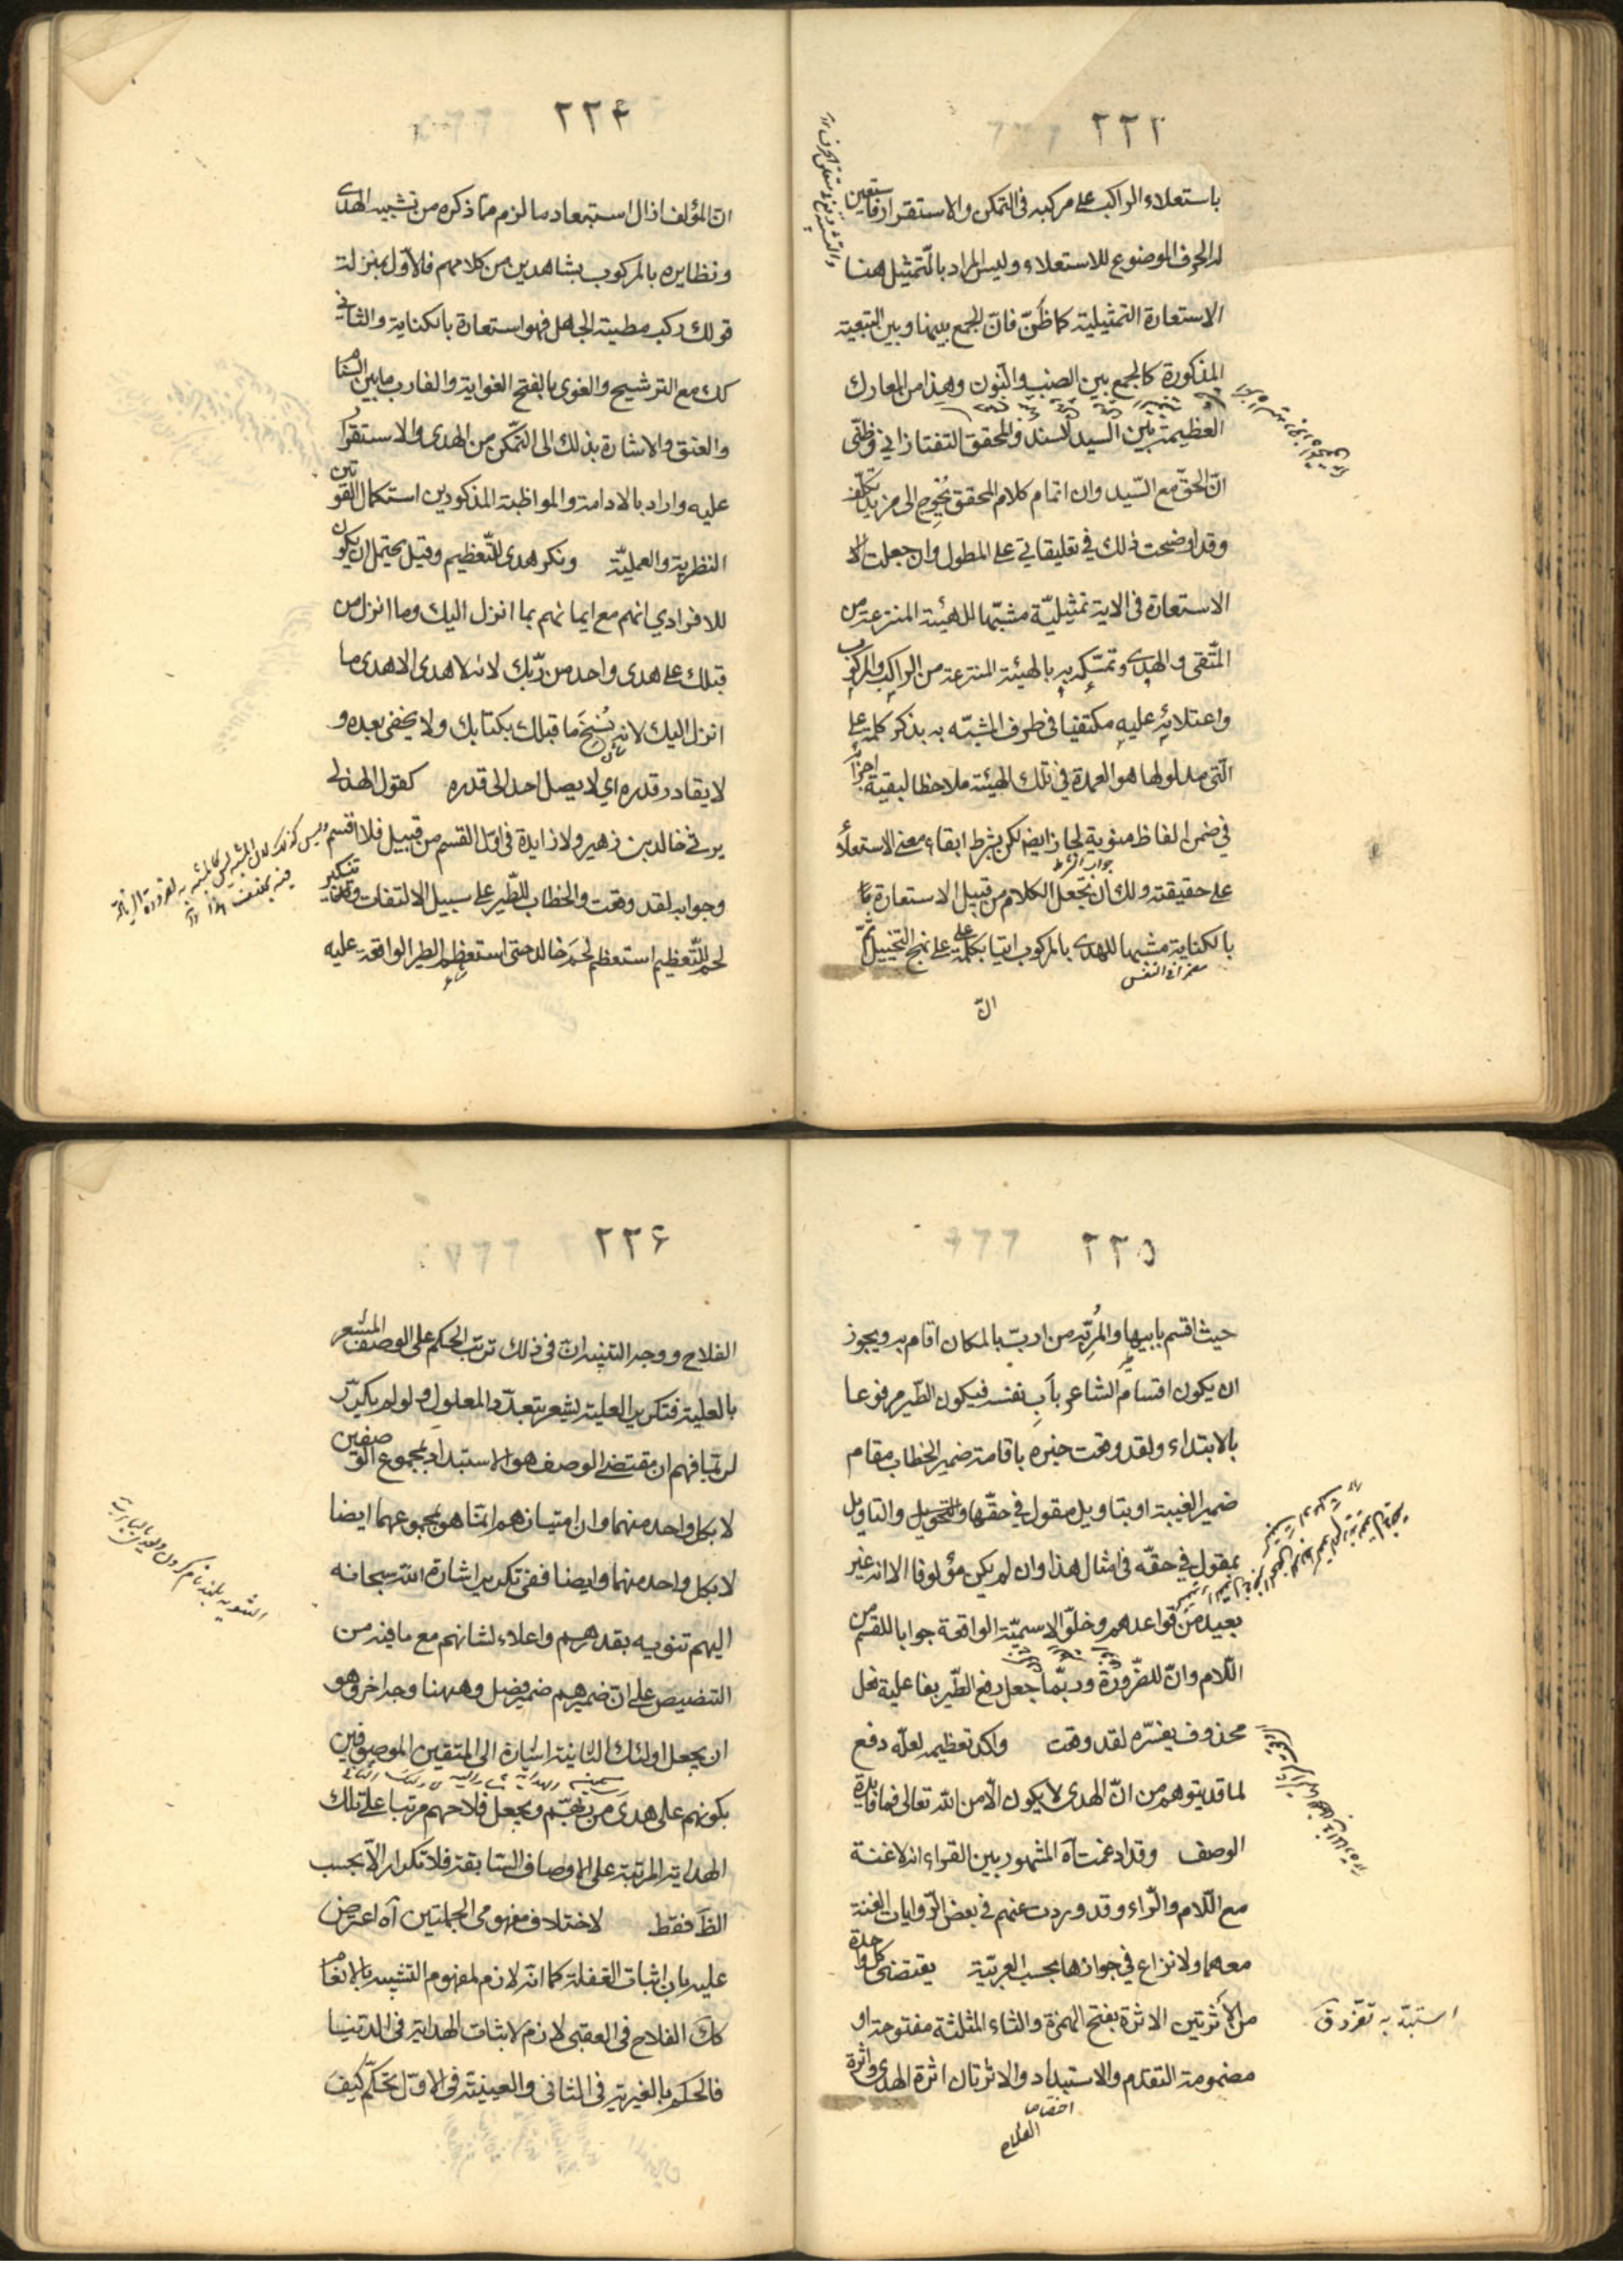 ٢٢٣
باستعلاء الراكب على مركبه فى التمكن والاستقرار فاستعين
له الحرف الموضوع للاستعلاء وليس المراد بالتّمثيل هنا
الاستعارة التمثيلية كما ظُنّ فانّ الجمع بينها وبين التبعية
المذكورة كالجمع بين الضب والنون وهذا من المعارك
العظيمة بين السيد السند والمحقق التفتازاني وظنّى
انّ الحقّ مع السّيد وان اتمام كلام المحقق يُحْوِج الى مزيد تكلّف
وقد اوضحت ذلك في تعليقاتي على المطول وان جعلت الا
الاستعارة فى الاية تمثيليّة مشبّها للهيئة المنتزعة من
المتّقى والهدى وتمسّكه به بالهيئة المنتزعة من الراكب والمركوب
واعتلائه عليه مكتفيا فى طرف المشبّه به بذكر كلمة على
الّتى مدلولها هو العمدة في تلك الهيئة ملاحظا لبقية اجزا
في ضمن الفاظ منوية لجاز ايضا لكن بشرط ابقاء معنى الاستعلاء
جواب الشرط
على حقيقته ولك ان تجعل الكلام من قبيل الاستعارة
بالكناية مشبها للهدى بالمركوب اتيا بكلمة على على نهج التخييل ثمّ
مضمرا فى النفس
انّ
٢٢٤
انّ المؤلف ازال استبعاد ما لزم ممّا ذكره من تشبيه الهدى
ونظايره بالمركوب بشاهدين من كلامهم فالاوّل بمنزلة
قولك ركب مطية الجاهل فهو استعارة بالكناية والثاني
كك مع الترشيح والغوى بالفتح الغواية والغارب ما بين السنام
والعنق والاشارة بذلك الى التمّكن من الهدى والاستقرار
عليه واراد بالادامة والمواظبة المذكورين استكمال القوتين
النظرية والعمليّة ونكر هدى للتّعظيم وقيل يحتمل ان يكون
للافراد اي انهم مع ايمانهم بما انزل اليك وما انزل من
قبلك على هدى واحد من ربّك لانه لا هدى الا هدى ما
انزل اليك لانه نُسِخَ ما قبلك بكتابك ولا يخفى بعده و
لا يقادر قدره اي لا يصل احد الى قدره كقول الهذلى
يرثى خالد بن زهير ولا زايدة فى اوّل القسم من قبيل فلا اقسم
وجوابه لقد وقعت والخطاب للطّير على سبيل الالتفات وتنكير
لحم للتّعظيم استعظم لحَم خالد حتى استعظم الطير الواقعة عليه
٢٢٥
حيث اقسم بابيها والمُرِبّة من اربّ بالمكان اقام به ويجوز
ان يكون اقسام الشاعر بأبِ نفسه فيكون الطّير مرفوعا
بالابتداء ولقد وقعت خبره باقامة ضمير الخطاب مقام
ضمير الغيبة او بتاويل مقول في حقّها والتحويل والتاويل
بمقول في حقّه فى امثال هذا وان لم يكن مؤلوفا الا انه غير
بعيد من قواعدهم وخلّو الاسميّة الواقعة جوابا للقسم من
اللّام وانّ للضّرورة وربّما جعل رفع الطّير بفاعلية فعل
محذوف يفسّره لقد وقعت واكد تعظيمه لعلّه دفع
لما قد يتوهم من انّ الهدى لا يكون الّا من الله تعالى فما فايدة
الوصف وقد ادغمت آه المشهور بين القراء انه لا غنة
مع اللّام والرّاء وقد وردت عنهم في بعض الرّوايات الغنة
معهما ولا نزاع في جوازها بحسب العربيّة يقتضى كل واحدة
من الأثرتين الاثرة بفتح الهمزة والثاء المثلثة مفتوحة او
مضمومة التقدم والاستبداد والاثرتان اثرة الهدى واثرة
اختصاصا
الفلاح
استبدّ به تفرّد
٢٢۶
الفلاح ووجه التنبيه انّ فى ذلك ترتب الحكم على الوصف المشعر
بالعلية فتكرير العلية لشعر بتعدّد المعلول ولو لم يكرّر
لربّما فهم ان مقتضى الوصف هو الاستبداد بمجموع الوصفين
لا بكل واحد منهما وان امتيازهم انّما هو بمجموعهما ايضا
لا بكل واحد منهما وايضا ففى تكرير اشارة الله سبحانه
اليهم تنويه بقدرهم واعلاء لشانهم مع ما فيه من
التنصيص على ان ضميرهم ضمير فصل وههنا وجه اخر وهو
ان يجعل اولئك الثانية اشارة الى المتقين الموصوفين
بكونهم على هدى من ربّهم ويجعل فلاحهم مرتبا على تلك
الهداية المرتبة على الاوصاف السّابقة فلا تكرار الّا بحسب
الظَ فقط لاختلاف مفهومى الجملتين آه اعترض
عليه بان اثبات الغفلة كما انّه لازم لمفهوم التشبيه بالانعام
كك الفلاح فى العقبى لازم لاثبات الهداية فى الدنيا
فالحكم بالغيرية فى الثانى والعينية فى الاوّل تحكّم كيف